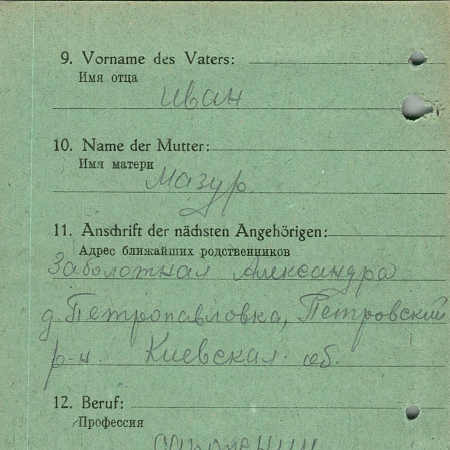 9. Vorname des Vaters:
Имя отца
иван
10. Name der Mutter:
Имя матери
Мазур
11. Anschrift der nächsten Angehörigen:
Адрес ближайших родственников
Заболотная Александра
д. Петропавловка, Петровский
р-н. Киевская обл.
12. Beruf:
Профессия